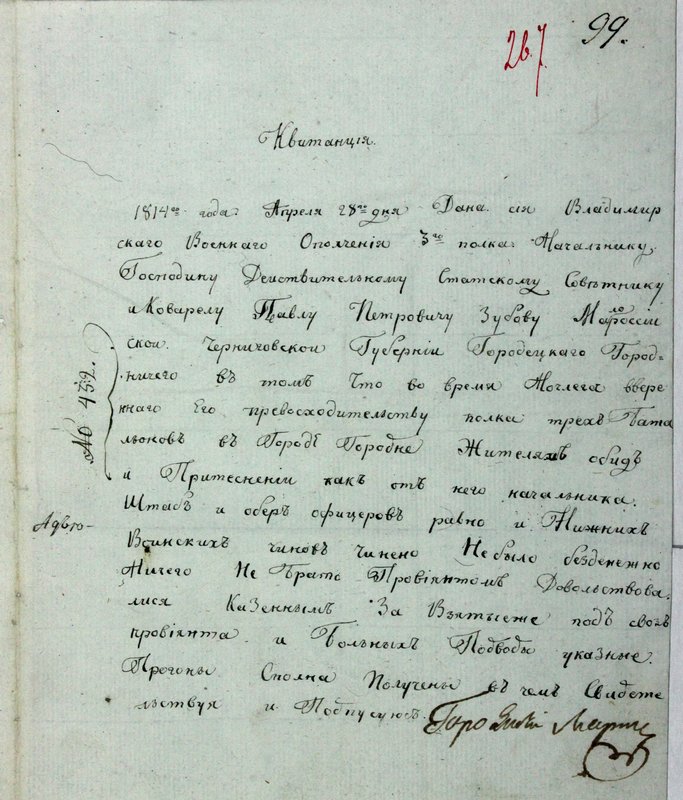 267. 99.
Квитанція.
1814го года Апреля 28го дня Дана сія Владимир
скаго Военнаго Ополченія 3го полка Началънику,
Господину Действительному Статскому Советнику
и Коварелу Павлу Петровичу Зубову Малоросій
ской Черниговской Губерніи Городецкаго Город=
ничего въ томъ Что во время Ночлега ввере
ннаго Его превосходителъству полка трехъ Бата
льоновъ въ Городѣ Городне Жителямъ обидъ
и Притесненіи какъ отъ него началъника.
Штабъ и оберъ офицеровъ равно и Нижнихъ
Воинскихъ чиновъ чинено Небыло безденежно
Ничего Не Брато Провіянтомъ Доволъствова
лися Казеннымъ За Взятыеже подъ свозъ
провіянта и Болъныхъ Подводы указные.
Прогоны Сполна Получены въ чемъ Свидете
лъствуя и Подписуюсь.
№ 452.